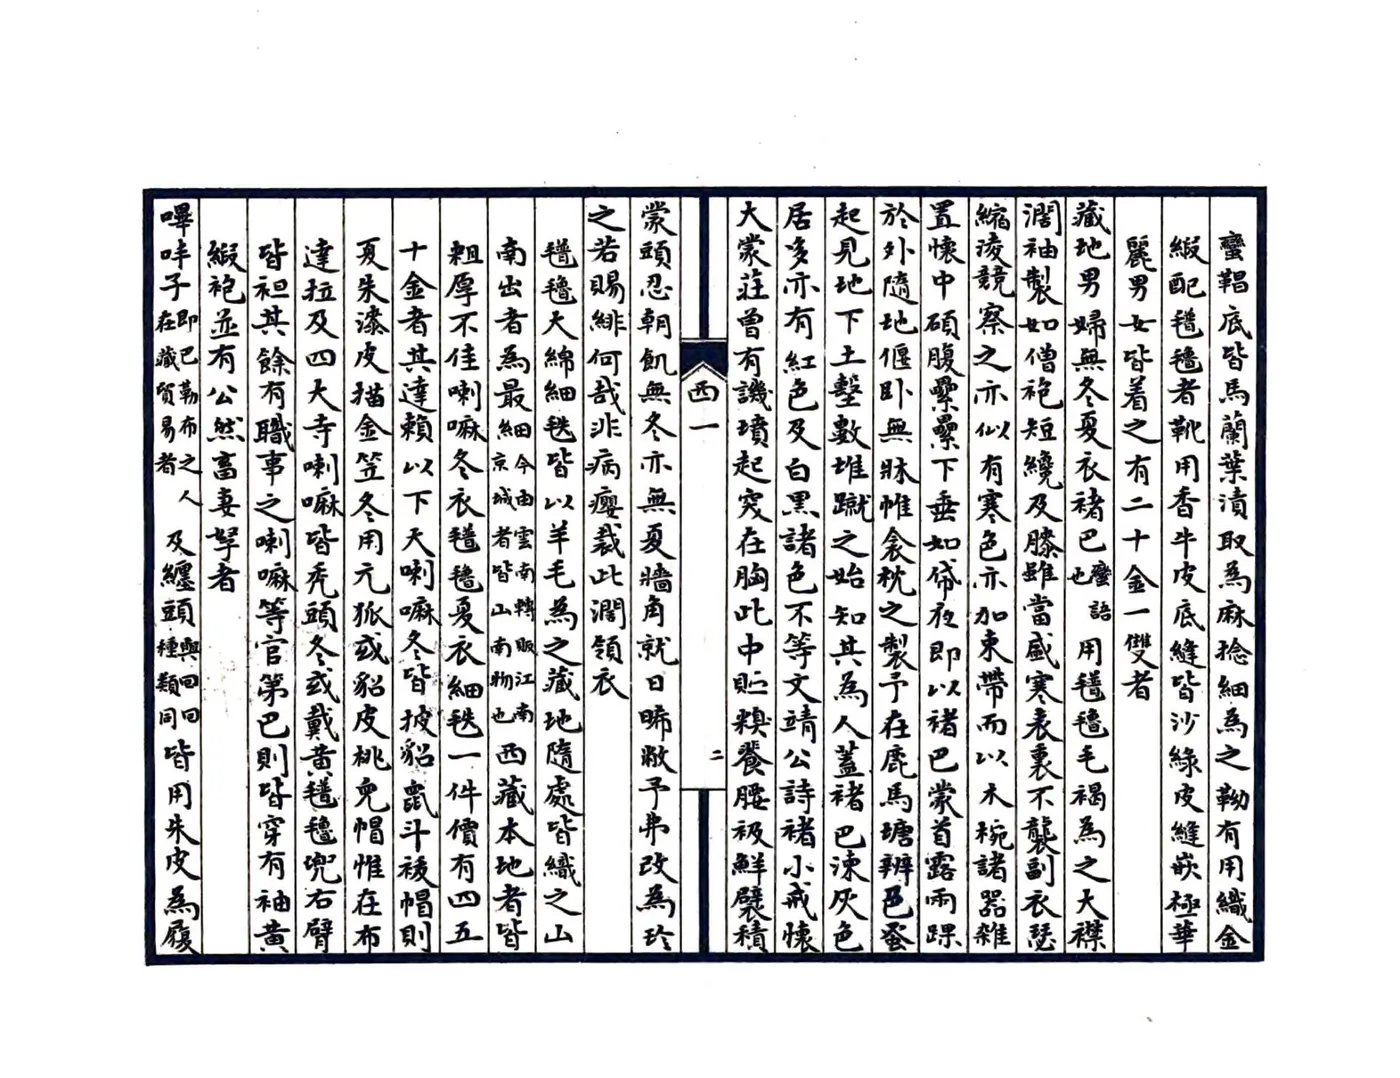 蠻鞜底皆馬蘭葉漬取為麻捻細為之靿有用織金
緞配氆氌者靴用香牛皮底縫皆沙綠皮縫嵌極華
麗男女皆着之有二十金一雙者
藏地男婦無冬夏衣褚巴蠻語也用氆氌毛褐為之大襟
濶袖製如僧袍短纔及膝雖當盛寒表裏不襲副衣瑟
縮淩競察之亦似有寒色亦加束帶而以木椀諸器雜
置懷中碩腹纍纍下垂如帒夜即以褚巴蒙首露兩踝
於外隨地偃卧無牀帷衾枕之製予在鹿馬塘辨色蚤
起見地下土墼數堆蹴之始知其為人蓋褚巴涑灰色
居多亦有紅色及白黑諸色不等文靖公詩褚小戒懷
大蒙莊曾有譏墳起突在胸此中貯糗養腰衱鮮襞積
西一
二
蒙頭忍朝飢無冬亦無夏牆角就日晞敝予弗改為珍
之若賜緋何哉非病癭裁此濶領衣
氆氌大綿細毯皆以羊毛為之藏地隨處皆織之山
南出者為最細今由雲南轉販江南京城者皆山南物也西藏本地者皆
粗厚不佳喇嘛冬衣氆氌夏衣細毯一件價有四五
十金者其達賴以下天喇嘛冬皆披貂鼠斗䘾帽則
夏朱漆皮描金笠冬用元狐或貂皮桃兒帽惟在布
達拉及四大寺喇嘛皆禿頭冬或戴黃氆氌兜右臂
皆袒其餘有職事之喇嘛等官第巴則皆穿有袖黃
緞袍並有公然畜妻孥者
嗶哶子即巴勒布之人在藏貿易者及纏頭與回回種類同皆用朱皮為履